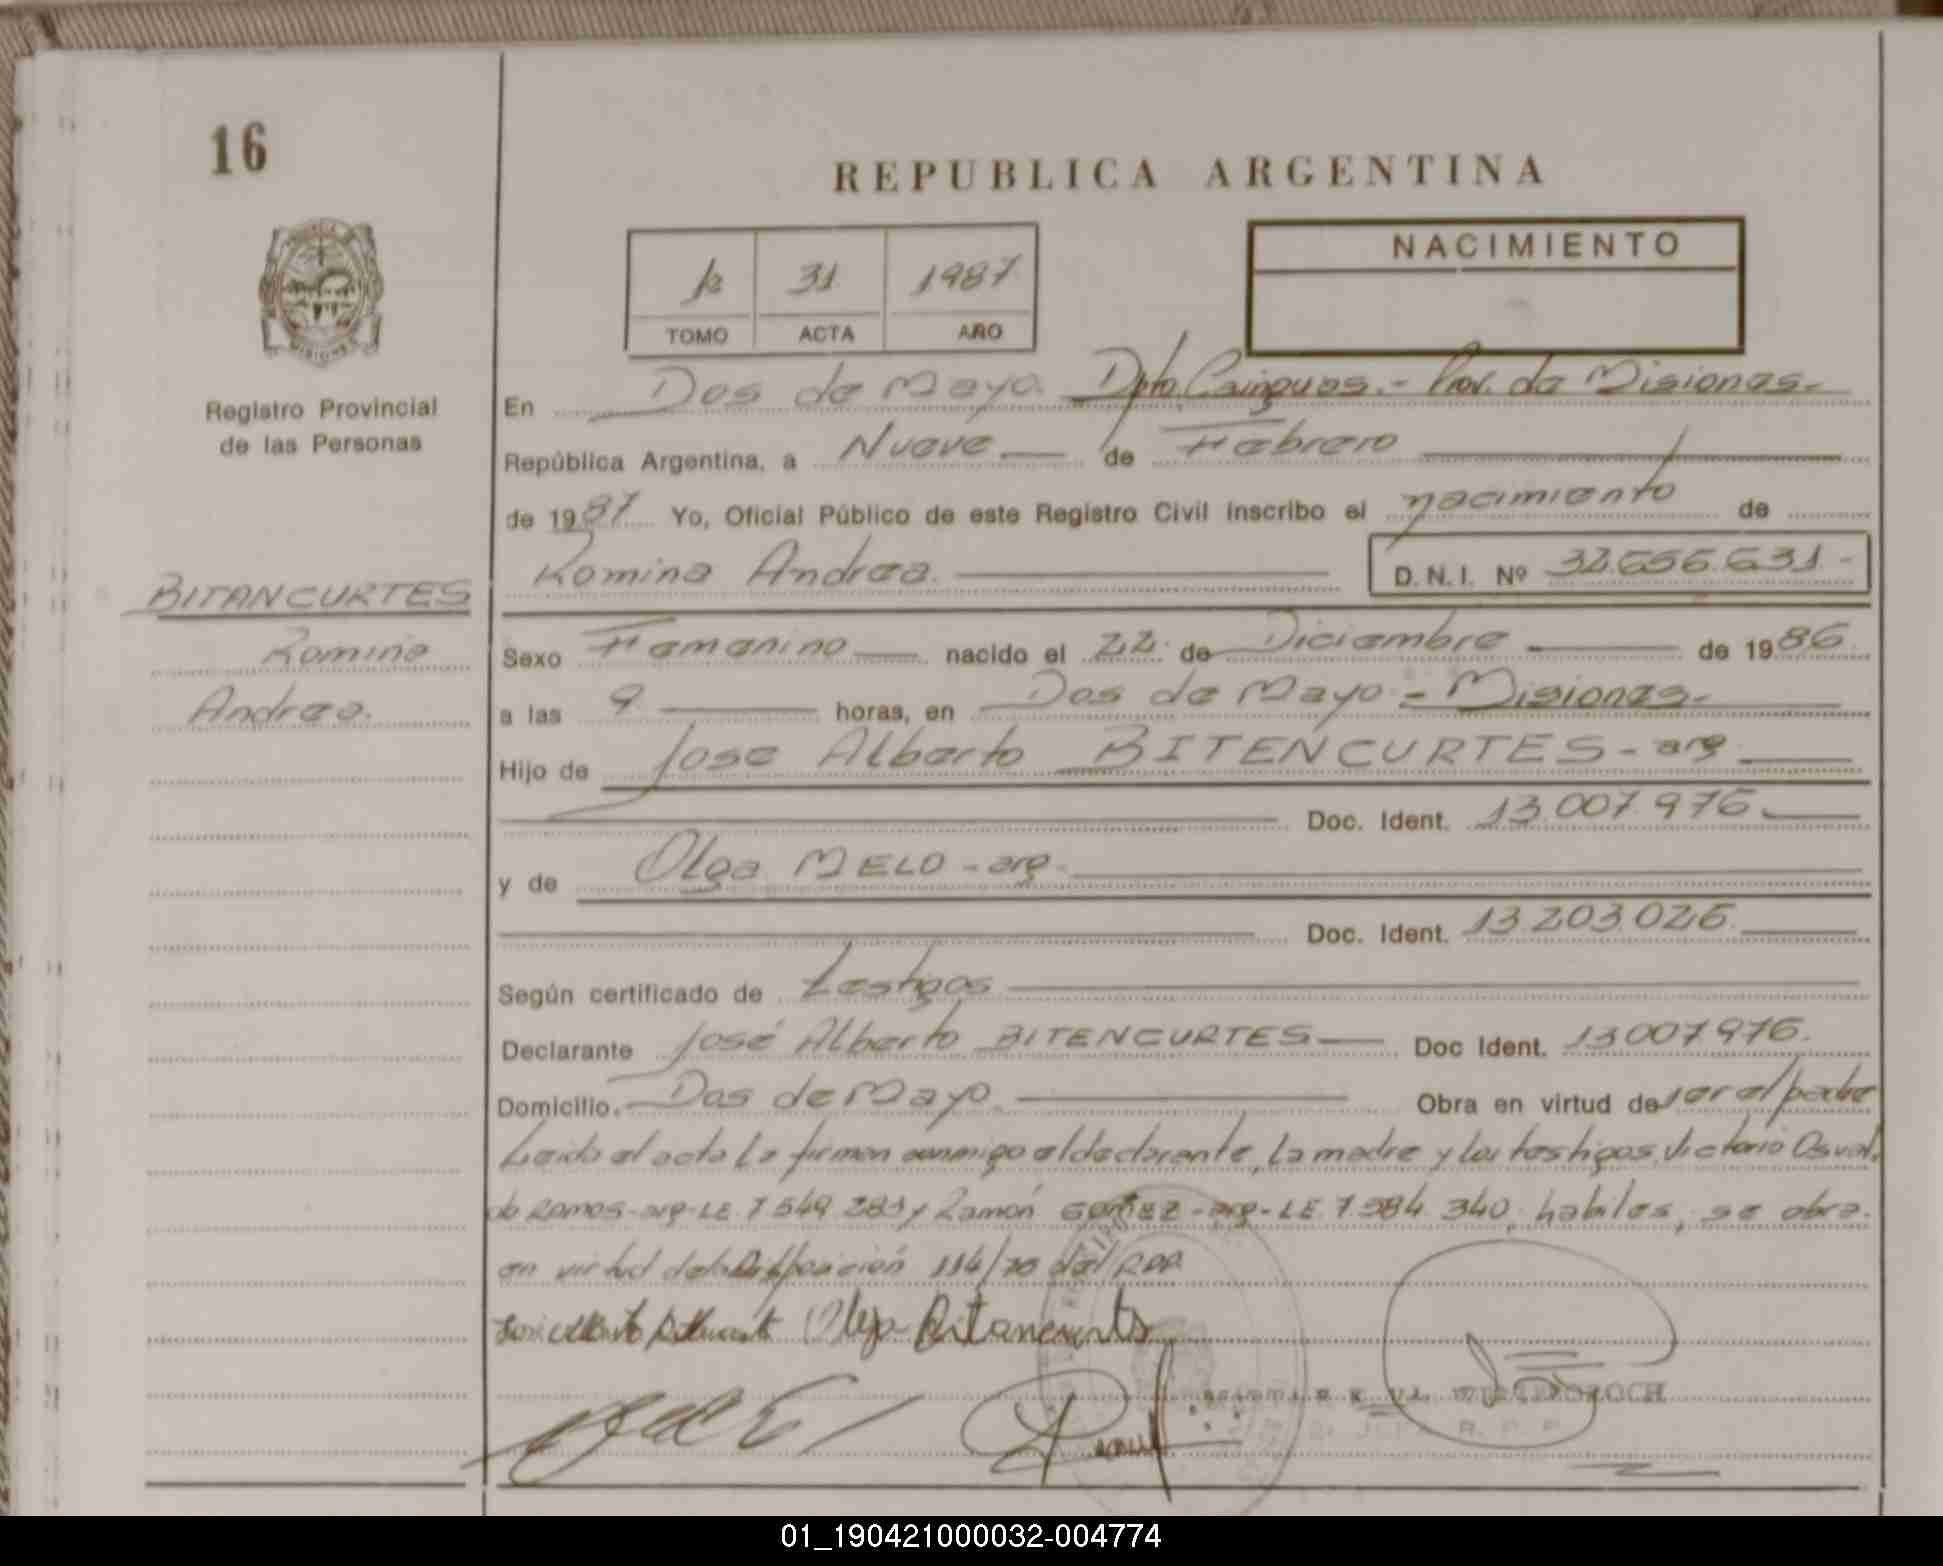 16
REPUBLICA ARGENTINA
NACIMIENTO
31 1987
TOMO ACTA AÑO
MISIONES
Registro Provincial
de las Personas
En Dos de Mayo. Dpto. Cainguas.- Prov. de Misiones.-
República Argentina, a Nueve de Febrero
de 1987 Yo, Oficial Público de este Registro Civil inscribo el nacimiento de
Romina Andrea. D.N.I. Nº 32.656.631.-
BITANCURTES
Romina
Andrea.
Sexo Femenino nacido el 22 de Diciembre de 1986
a las 9 horas, en Dos de Mayo - Misiones.-
Hijo de Jose Alberto BITENCURTES - arg
Doc. Ident. 13.007.976
y de Olga MELO - arg.
Doc. Ident. 13.203.026.
Según certificado de Testigos
Declarante José Alberto BITENCURTES Doc Ident. 13.007.976.
Domicilio. Dos de Mayo. Obra en virtud de ser el padre
Leida el acta la firman conmigo el declarante, la madre y los testigos, Victorio Osval
do Ramos - arg - LE. 7.549.283 y Ramón GOMEZ - arg - LE 7.584.340, habiles, se obra
en virtud de la Disposición 114/70 del RPP
Olga Bitancurts
01_190421000032-004774